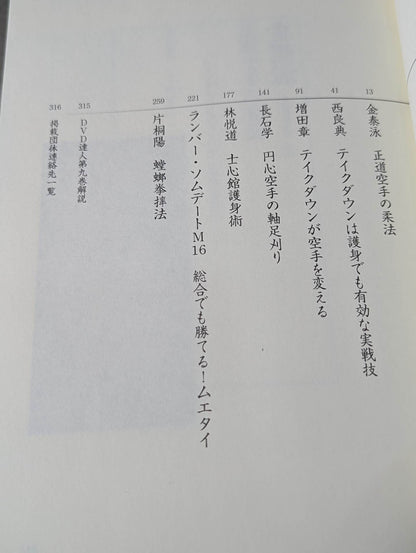 13 金泰泳 正道空手の柔法
41 西良典 テイクダウンは護身でも有効な実戦技
91 増田章 テイクダウンが空手を変える
141 長石学 円心空手の軸足刈り
177 林悦道 士心館護身術
221 ランバー・ソムデートM16 総合でも勝てる!ムエタイ
259 片桐陽 螳螂拳摔法
315 DVD達人第九巻解説
316 掲載団体連絡先一覧